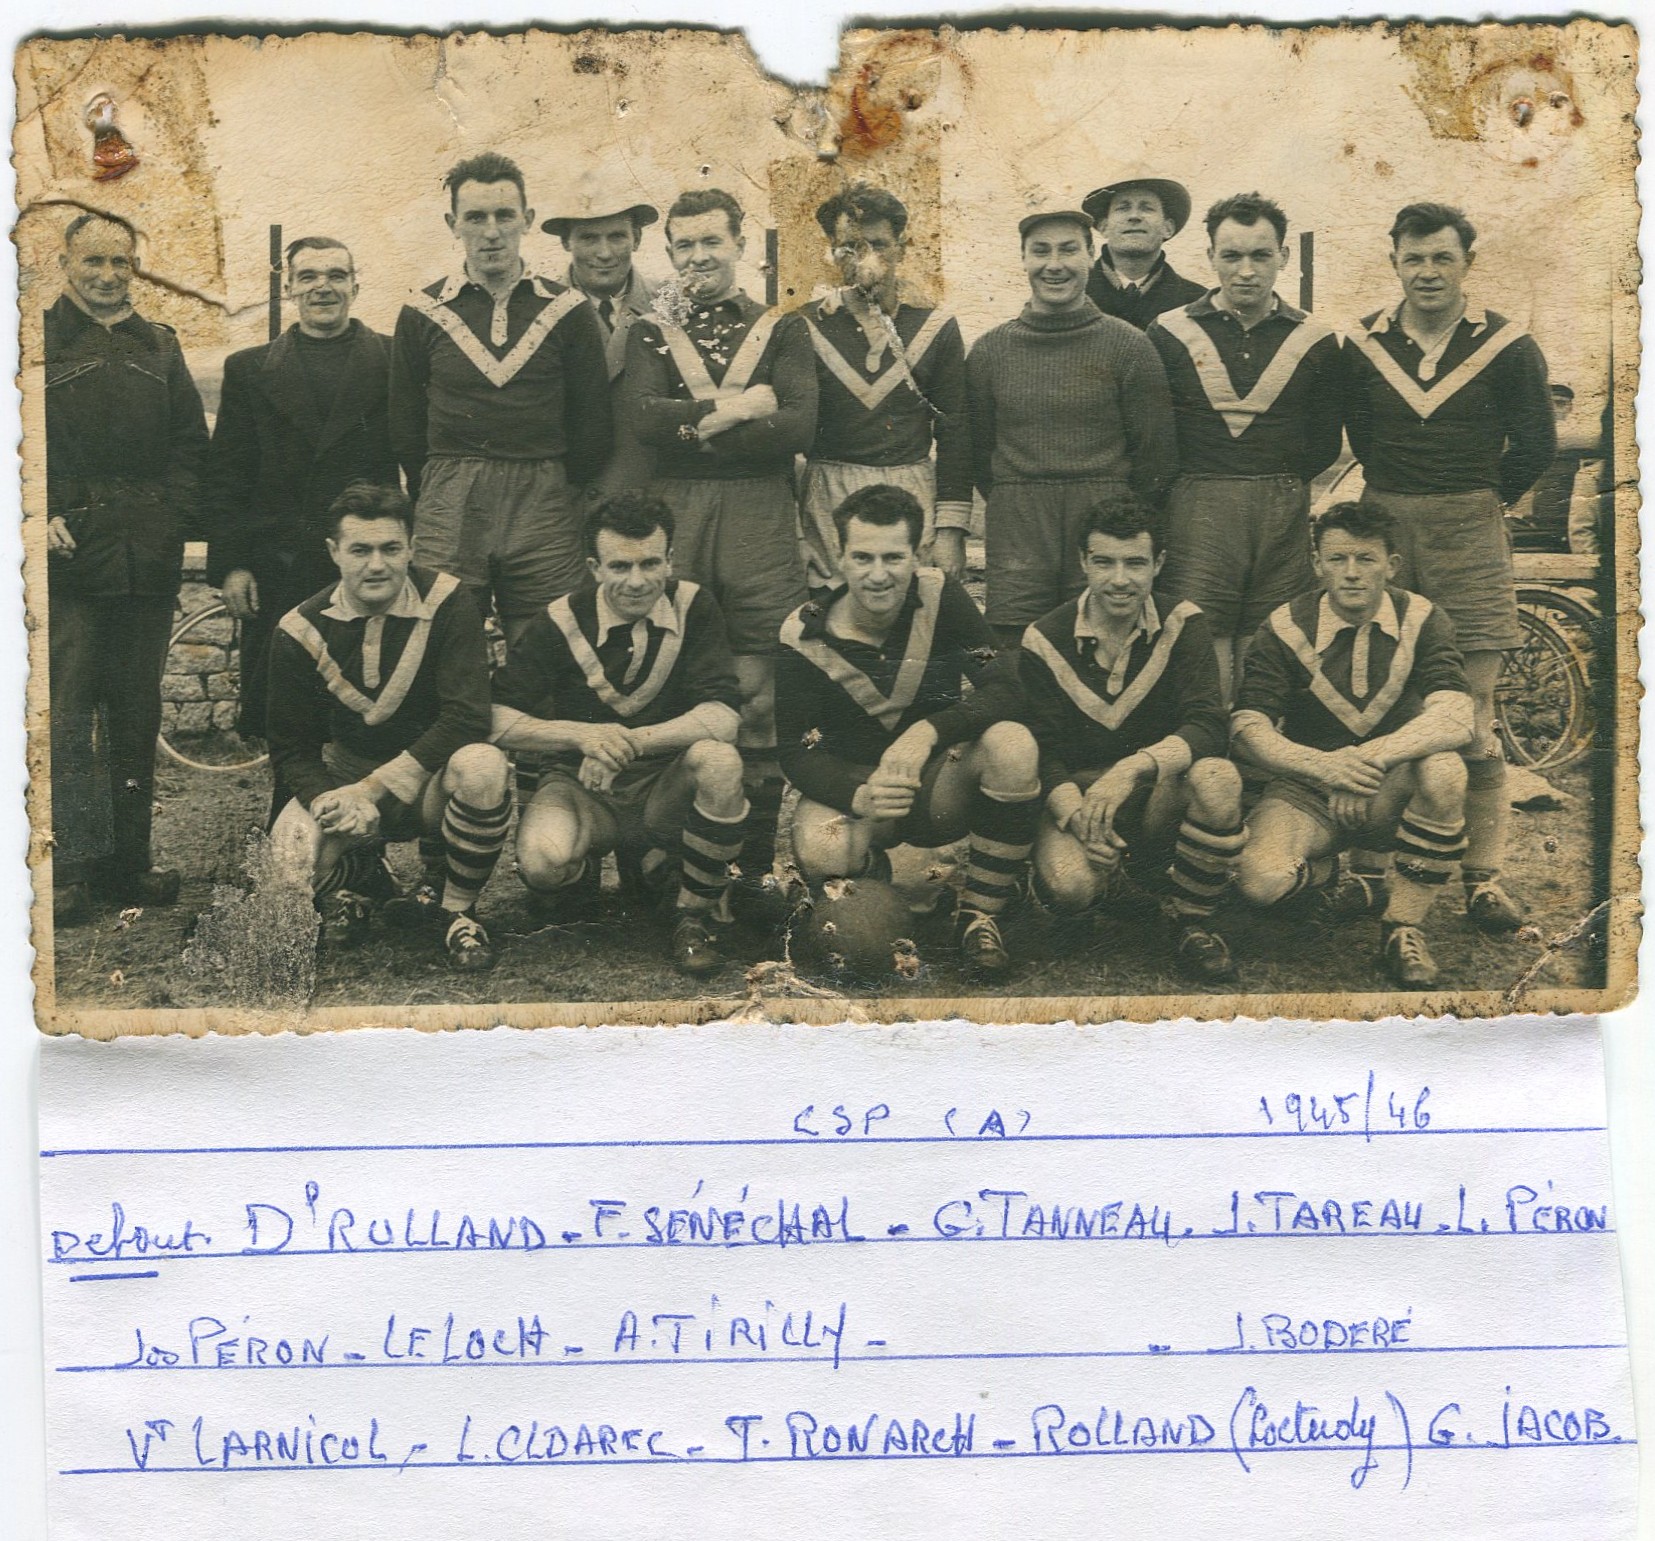 CSP (A) 1945/46
Debout. Dᵖ RULLAND - F. SÉNÉCHAL - G. TANNEAU. J. TAREAU. L. PÉRON
Joo PÉRON - LE LOCH - A. TIRILLY - - J. BODERÉ
Vᵀ LARNICOL, - L. CLDAREC - T. RONARCH - ROLLAND (Loctudy) G. JACOB.